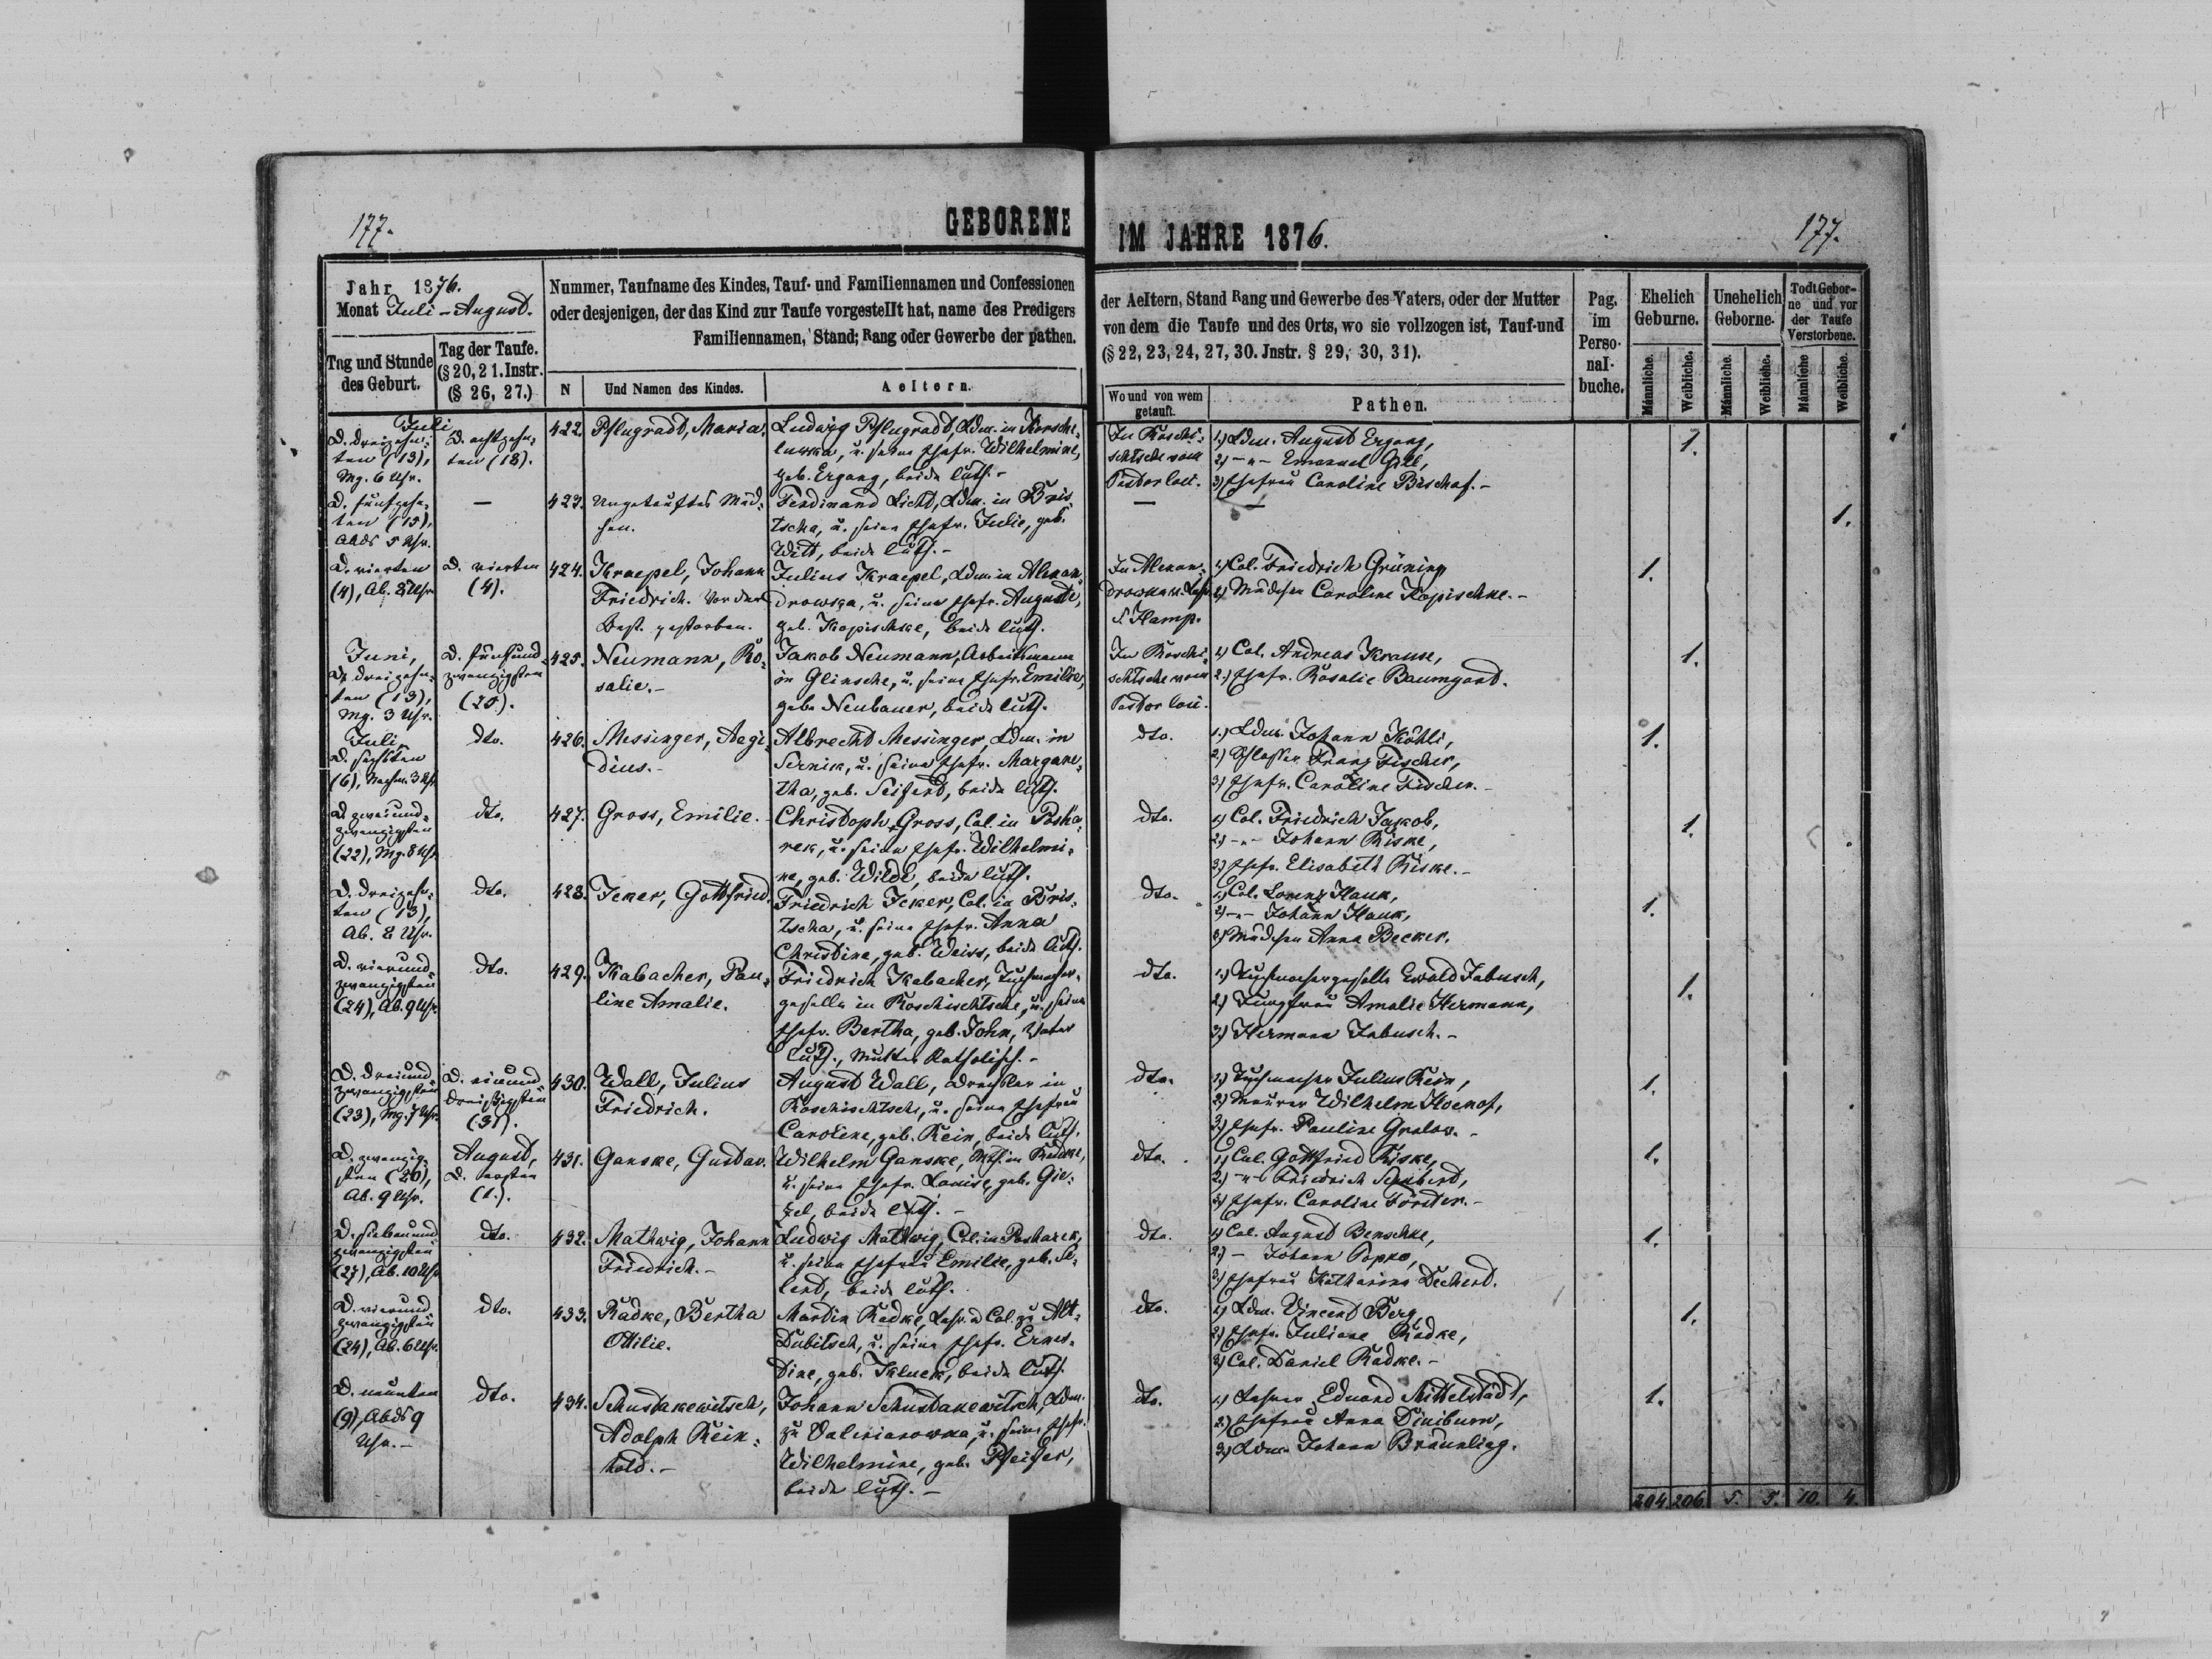 177.
GEBORENE
IM JAHRE 1876.
177.
Jahr 1876.
Monat Juli - August.
Tag und Stunde
des Geburt.
Tag der Taufe.
(§ 20, 21. Instr.
(§ 26, 27.)
Nummer, Taufname des Kindes, Tauf- und Familiennamen und Confessionen
oder desjenigen, der das Kind zur Taufe vorgestellt hat, name des Predigers
Familiennamen, Stand; Rang oder Gewerbe der pathen.
N
Und Namen des Kindes.
Aeltern.
der Aeltern, Stand Rang und Gewerbe des Vaters, oder der Mutter
von dem die Taufe und des Orts, wo sie vollzogen ist, Tauf-und
(§ 22, 23, 24, 27, 30. Jnstr. § 29, 30, 31).
Wo und von wem
getauft.
Pathen.
Pag.
im
Perso-
nal-
buche.
Ehelich
Geburne.
Unehelich
Geborne.
Todt Gebor-
ne und vor
der Taufe
Verstorbene.
Männliche.
Weibliche.
Männliche.
Weibliche.
Männliche
Weibliche.
Juli
D. dreizehn-
ten (13),
Mg. 6 Uhr.
D. achtzehn-
ten (18).
422.
Pflugradt, Maria.
Ludwig Pflugradt, Ldm. in Korsche-
lewka, u. seine Ehefr. Wilhelmine,
geb. Ergang, beide luth.-
In Roschi-
schtsche vom
Pastor loci.
1.) Ldm. August Ergang,
2.) -"- Emanuel Gill,
3) Ehefrau Caroline Bischof.-
1.
D. fünfzehn-
ten (15),
Abds 5 Uhr.
—
423.
Ungetauftes Mäd-
chen.
Ferdinand Licht, Ldm. in Bris-
tscha, u. seine Ehefr. Julie, geb.
Witt, beide luth.-
—
—
1.
D. vierten
(4), Ab. 8 Uhr
D. vierten
(4).
424.
Kraepel, Johann
Friedrich. Vor der
Best. gestorben.
Julius Kraepel, Ldm. in Alexan-
drowka, u. seine Ehefr. Auguste,
geb. Kopischke, beide luth.
In Alexan-
drowka v. Lehr.
1.) Col. Friedrich Grüning
2) Mädchen Caroline Kopischke.-
1.
Juni,
D. dreizehn-
ten (13),
Mg. 3 Uhr.
D. fünfund-
zwanzigsten
(25).
425.
Neumann, Ro-
salie.-
Jakob Neumann, Arbeitsmann
in Glinsche, u. seine Ehefr. Emilie,
geb. Neubauer, beide luth.
In Roschi-
schtsche vom
Pastor loci.
1) Col. Andreas Krause,
2.) Ehefr. Rosalie Baumgard.
1.
Juli,
D. sechsten
(6), Nachm. 3 Uhr
dto.
426.
Messinger, Aegi-
dius.-
Albrecht Messinger, Ldm. in
Sernik, u. seine Ehefr. Margare-
tha, geb. Seiferd, beide luth.
dto.
1.) Ldm. Johann Köhli,
2.) Schlosser Franz Fischer,
3) Ehefr. Caroline Fischer.-
1.
D. zweiund-
zwanzigsten
(22), Mg. 8 Uhr
dto.
427.
Gross, Emilie.
Christoph Gross, Col. in Posha-
rek, u. seine Ehefr. Wilhelmi-
ne, geb. Wilde, beide luth.
dto.
1) Col. Friedrich Jakob,
2) -"- Johann Riske,
3) Ehefr. Elisabeth Riske.-
1.
D. dreizehn-
ten (13),
Ab. 8 Uhr.
dto.
428.
Jeker, Gottfried.
Friedrich Jeker, Col. in Bris-
tscha, u. seine Ehefr. Anna
Christine, geb. Weiss, beide luth.
dto.
1) Col. Lorenz Hauk,
2) -"- Johann Hauk,
3) Mädchen Anna Becker.
1.
D. vierund-
zwanzigsten
(24), Ab. 9 Uhr.
dto.
429.
Kabacher, Pau-
line Amalie.
Friedrich Kabacher, Tuchmacher-
geselle in Roschischtsche, u. seine
Ehefr. Bertha, geb. John, Vater
luth., Mutter katholisch.-
dto.
1) Tuchmachergeselle Ewald Jabusch,
2) Jungfrau Amalie Hermann,
3) Hermann Jabusch.-
1.
D. dreiund-
zwanzigsten
(23), Mg. 7 Uhr.
D. einund-
dreißigsten
(31).
430.
Wall, Julius
Friedrich.
August Wall, Drechsler in
Roschischtsche, u. seine Ehefrau
Caroline, geb. Rein, beide luth.
dto.
1.) Tuchmacher Julius Rein,
2) Maurer Wilhelm Hoenof,
3.) Ehefr. Pauline Grolow.-
1.
D. zwanzig-
sten (20),
Ab. 9 Uhr.
August,
D. ersten
(1.).
431.
Ganske, Gustav.
Wilhelm Ganske,
u. seine Ehefr. Louise, geb. Gie-
zel, beide luth.-
dto.
1) Col. Gottfried Riske,
2.) -"- Friedrich Schubert,
3) Ehefr. Caroline Förster.-
1.
D. siebenund-
zwanzigsten
(27), Ab. 10 Uhr
dto.
432.
Mathwig, Johann
Friedrich.-
Ludwig Mathwig, Col. in Posharek,
u. seine Ehefrau Emilie, geb. Se-
lent, beide luth.
dto.
1) Col. August Benschke,
2.) - Johann Popko,
3) Ehefrau Katharina Dechert.
1.
D. vierund-
zwanzigsten
(24), Ab. 6 Uhr.
dto.
433.
Radke, Bertha
Ottilie.
Martin Radke, Lehr. u Col. zu Alt-
Dubitsch, u. seine Ehefr. Ernes-
tine, geb. Kluck, beide luth.
dto.
1) Ldm. Vincent Berg
2) Ehefr. Juliane Radke,
3) Col. Daniel Radke.-
1.
D. neunten
(9), Abds 9
Uhr.-
dto.
434.
Schustakewitsch,
Adolph Rein-
hold.-
Johann Schustakewitsch, Ldm.
zu Valerianowka, u. seine Ehefr.
Wilhelmine, geb. Pfeifer,
beide luth.-
dto.
1.) Lehrer Eduard Mittelstädt,
2.) Ehefrau Anna Diniburn,
3.) Ldm. Johann Bräunling.
1.
204. 206. 5. 5. 10. 4.